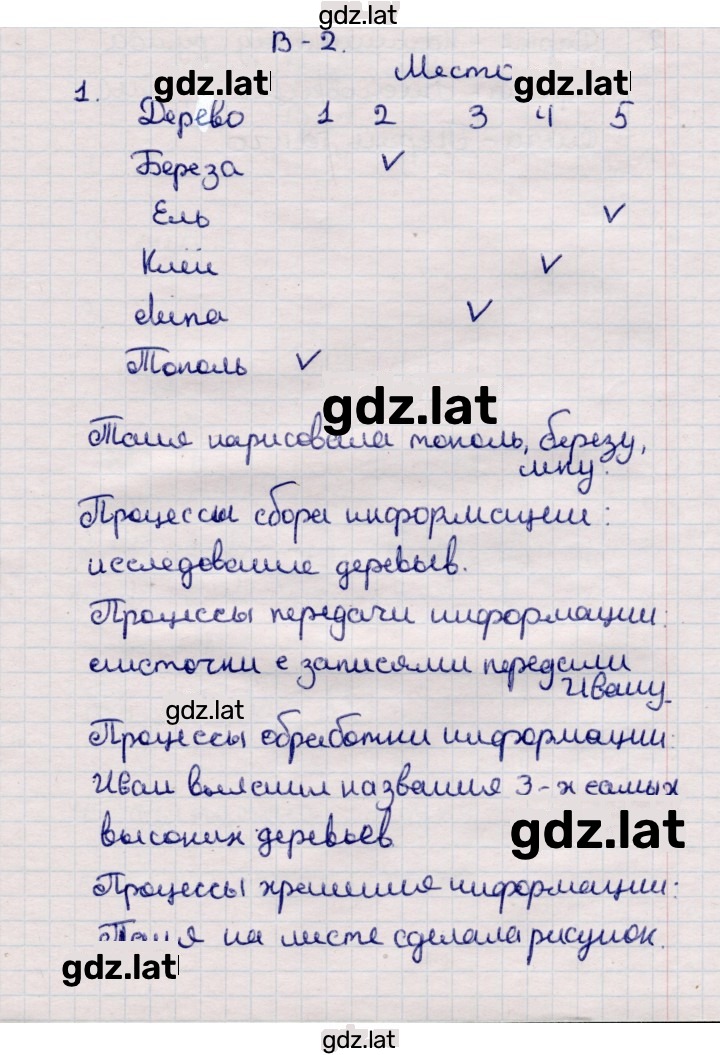 gdz.lat
В - 2.
Место
gdz.lat gdz.lat
1.
Дерево 1 2 3 4 5
Береза ✓
Ель ✓
Клён ✓
Липа ✓
Тополь ✓
gdz.lat
Таня нарисовала тополь, березу,
липу.
Процессы сбора информации:
исследование деревьев.
Процессы передачи информации:
листочки с записями передали
Ивану
gdz.lat
Процессы обработки информации:
Иван выяснил названия 3-х самых
высоких деревьев
gdz.lat
Процессы хранения информации:
Таня на листе сделала рисунок.
gdz.lat
gdz.lat